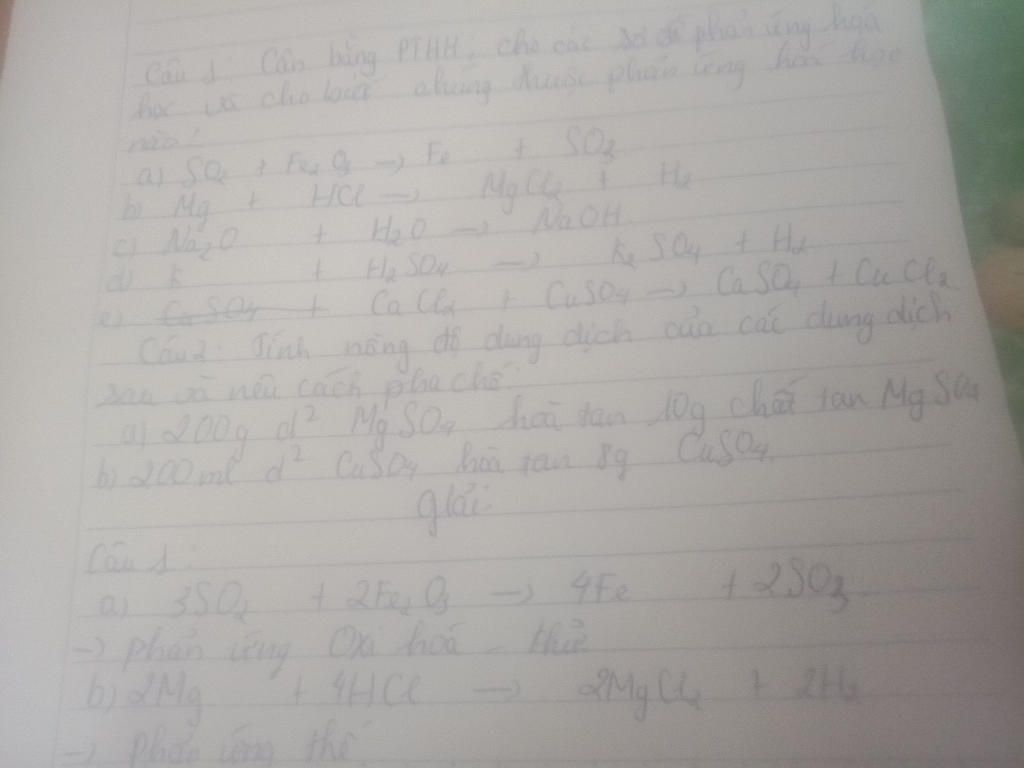 Câu 1: Cân bằng PTHH, cho các sơ đồ phản ứng hoá
học và cho biết chúng thuộc phản ứng hoá học
nào?
a) SO2 + Fe2O3 → Fe + SO3
b) Mg + HCl → MgCl2 + H2
c) Na2O + H2O → NaOH
d) K + H2SO4 → K2SO4 + H2
e) CaCl2 + CuSO4 → CaSO4 + CuCl2
Câu 2: Tính nồng độ dung dịch của các dung dịch
sau và nêu cách pha chế:
a) 200g d² MgSO4 hoà tan 10g chất tan MgSO4
b) 200ml d² CuSO4 hoà tan 8g CuSO4.
Giải:
Câu 1:
a) 3SO2 + 2Fe2O3 → 4Fe + 2SO3
→ phản ứng Oxi hoá - khử
b) 2Mg + 4HCl → 2MgCl2 + 2H2
→ phản ứng thế